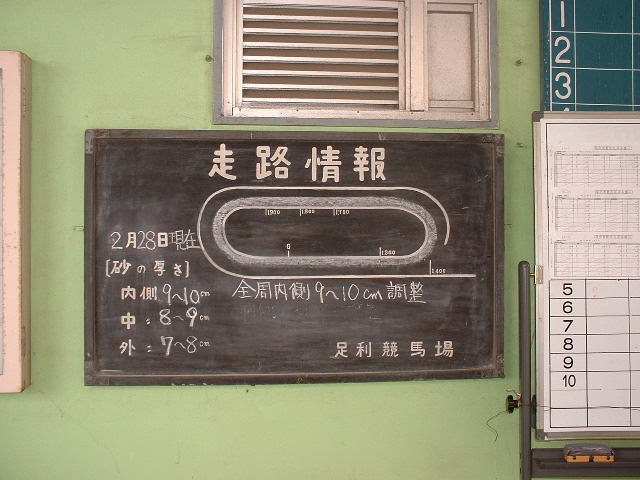 走路情報
1900 1800 1700
2月28日現在
G 1300
1400
[砂の厚さ]
内側 9～10cm
全周内側9～10cm調整
中: 8～9cm
外: 7～8cm
足利競馬場
1
2
3
5
6
7
8
9
10